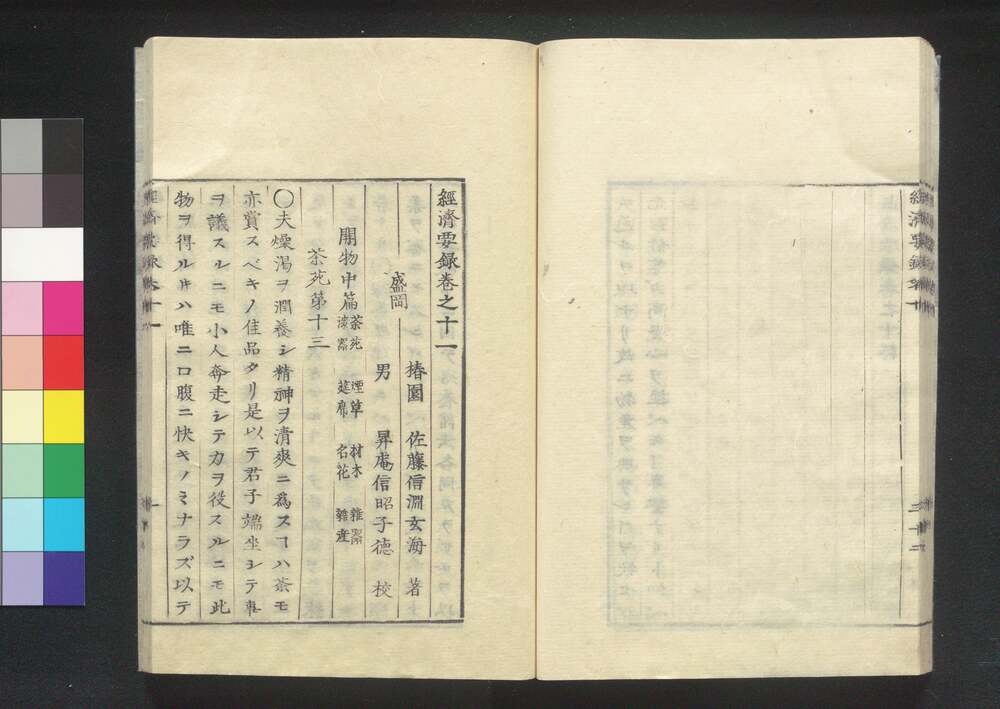 經濟要録巻之十一
盛岡
椿園 佐藤信淵玄海 著
男 昇庵信昭子德 校
開物中篇 茶苑 煙草 材木 雜器
漆器 莚席 名花 雜産
茶苑第十三
〇夫燥渇ヲ潤養シ精神ヲ清爽ニ爲スヿハ茶モ
亦賞スベキノ佳品タリ是以テ君子端坐シテ事
ヲ議スルニモ小人奔走シテ力ヲ役スルニモ此
物ヲ得ルキハ唯ニ口腹ニ快キノミナラズ以テ